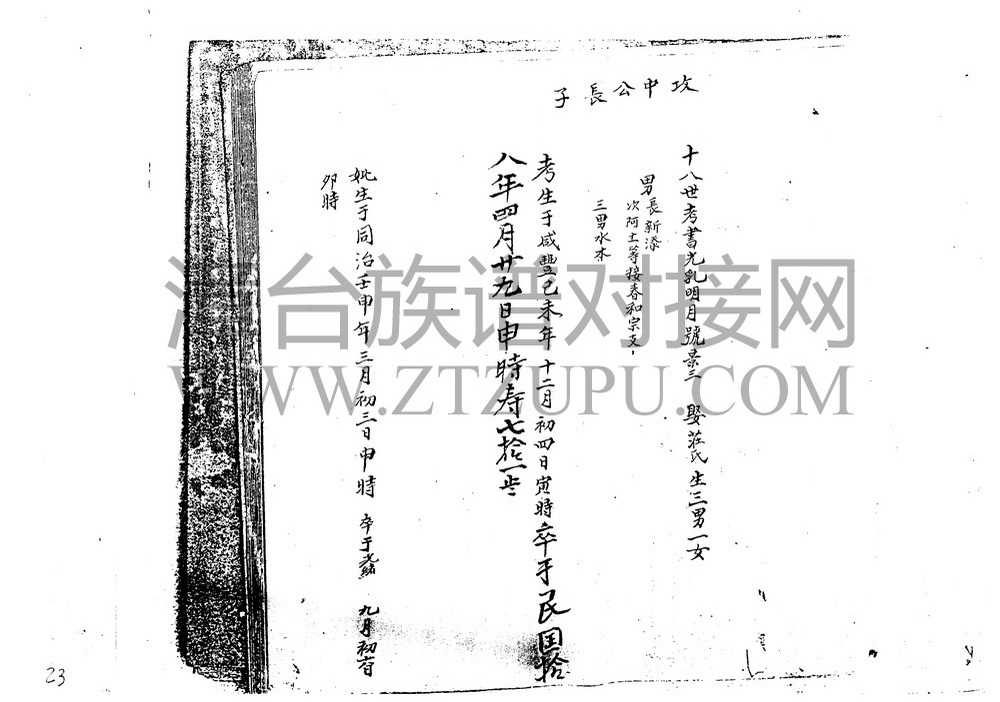 攻中公長子
十八世考書光乳明月號景三 娶莊氏生三男一女
男長新添
次阿土等接春和宗支
三男水本
考生于咸豐己未年十二月初四日寅時卒于民国拾
八年四月廿九日申時寿七拾一岁
妣生于同治壬申年三月初三日申時 卒于光緒 九月初六日
夘時
台族谱对接网
WWW.ZTZUPU.COM
23